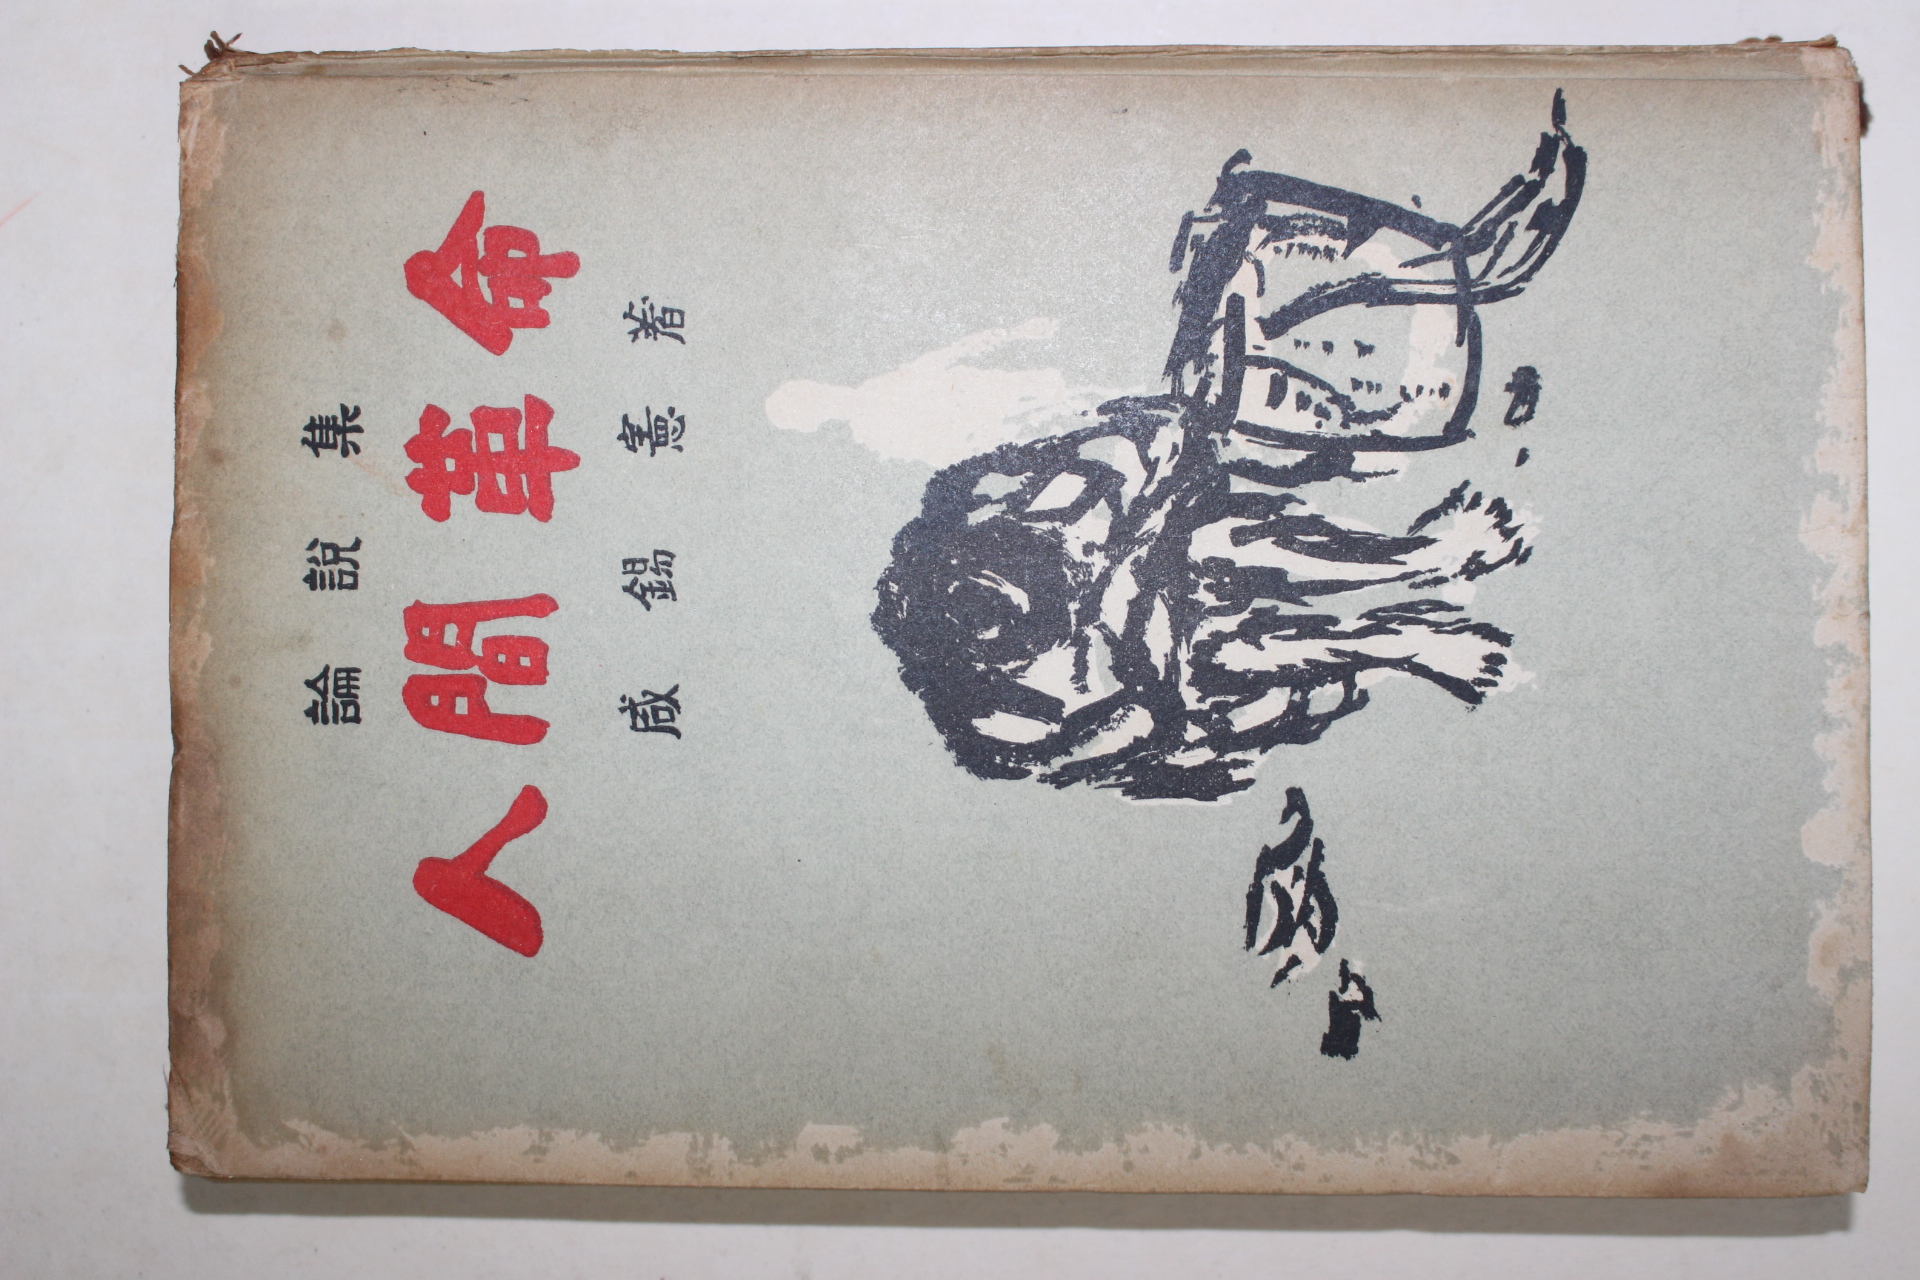 論說集
人間革命
咸錫憲著